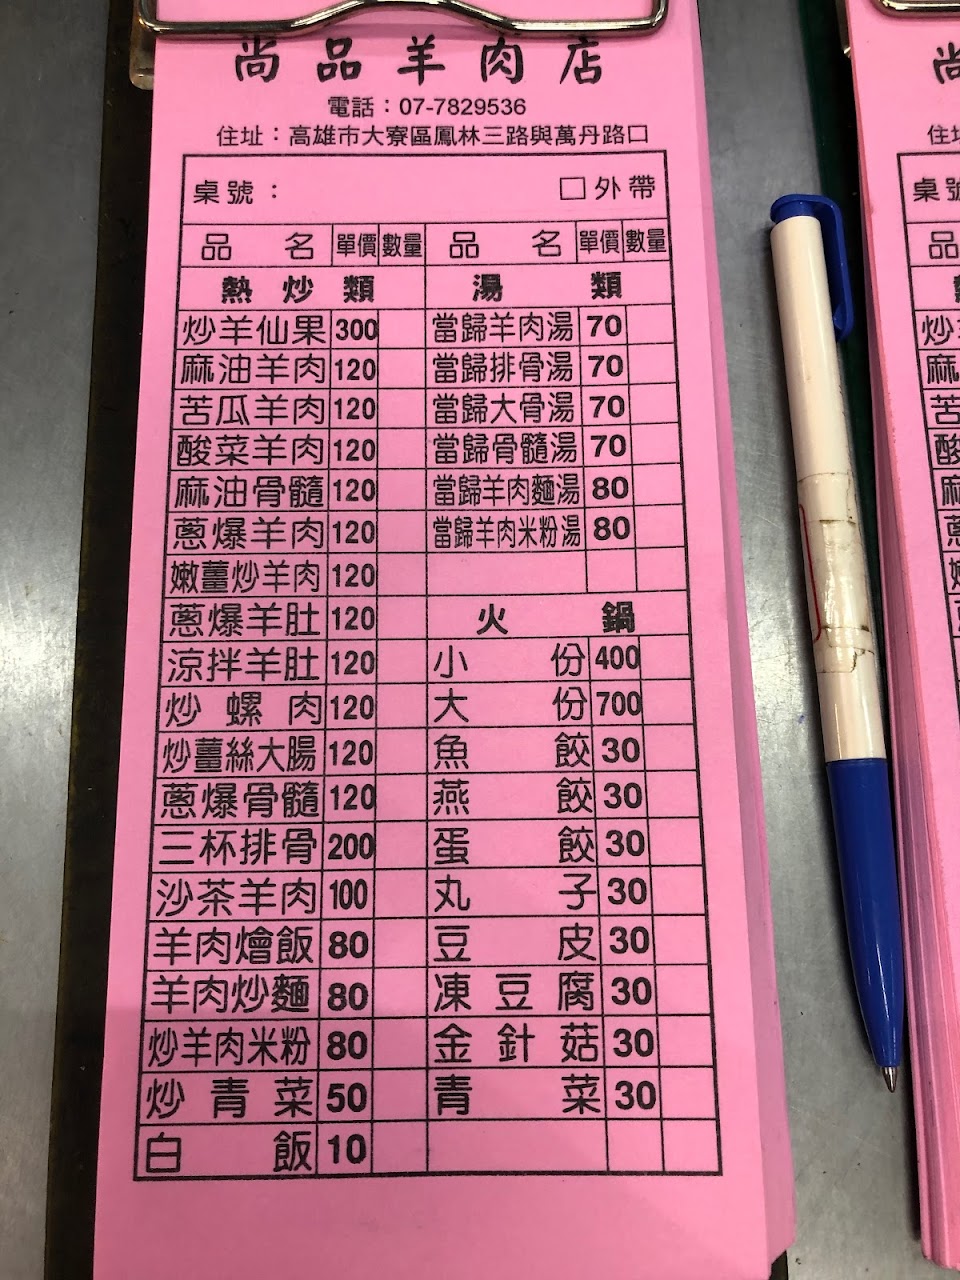 尚品羊肉店
電話：07-7829536
住址：高雄市大寮區鳳林三路與萬丹路口
桌號： □外帶
品名 單價 數量 品名 單價 數量
熱炒類 湯類
炒羊仙果 300 當歸羊肉湯 70
麻油羊肉 120 當歸排骨湯 70
苦瓜羊肉 120 當歸大骨湯 70
酸菜羊肉 120 當歸骨髓湯 70
麻油骨髓 120 當歸羊肉麵湯 80
蔥爆羊肉 120 當歸羊肉米粉湯 80
嫩薑炒羊肉 120
蔥爆羊肚 120 火鍋
涼拌羊肚 120 小份 400
炒螺肉 120 大份 700
炒薑絲大腸 120 魚餃 30
蔥爆骨髓 120 燕餃 30
三杯排骨 200 蛋餃 30
沙茶羊肉 100 丸子 30
羊肉燴飯 80 豆皮 30
羊肉炒麵 80 凍豆腐 30
炒羊肉米粉 80 金針菇 30
炒青菜 50 青菜 30
白飯 10
尚
住址
桌號
品
炒
麻
苦
酸
麻
蔥
嫩